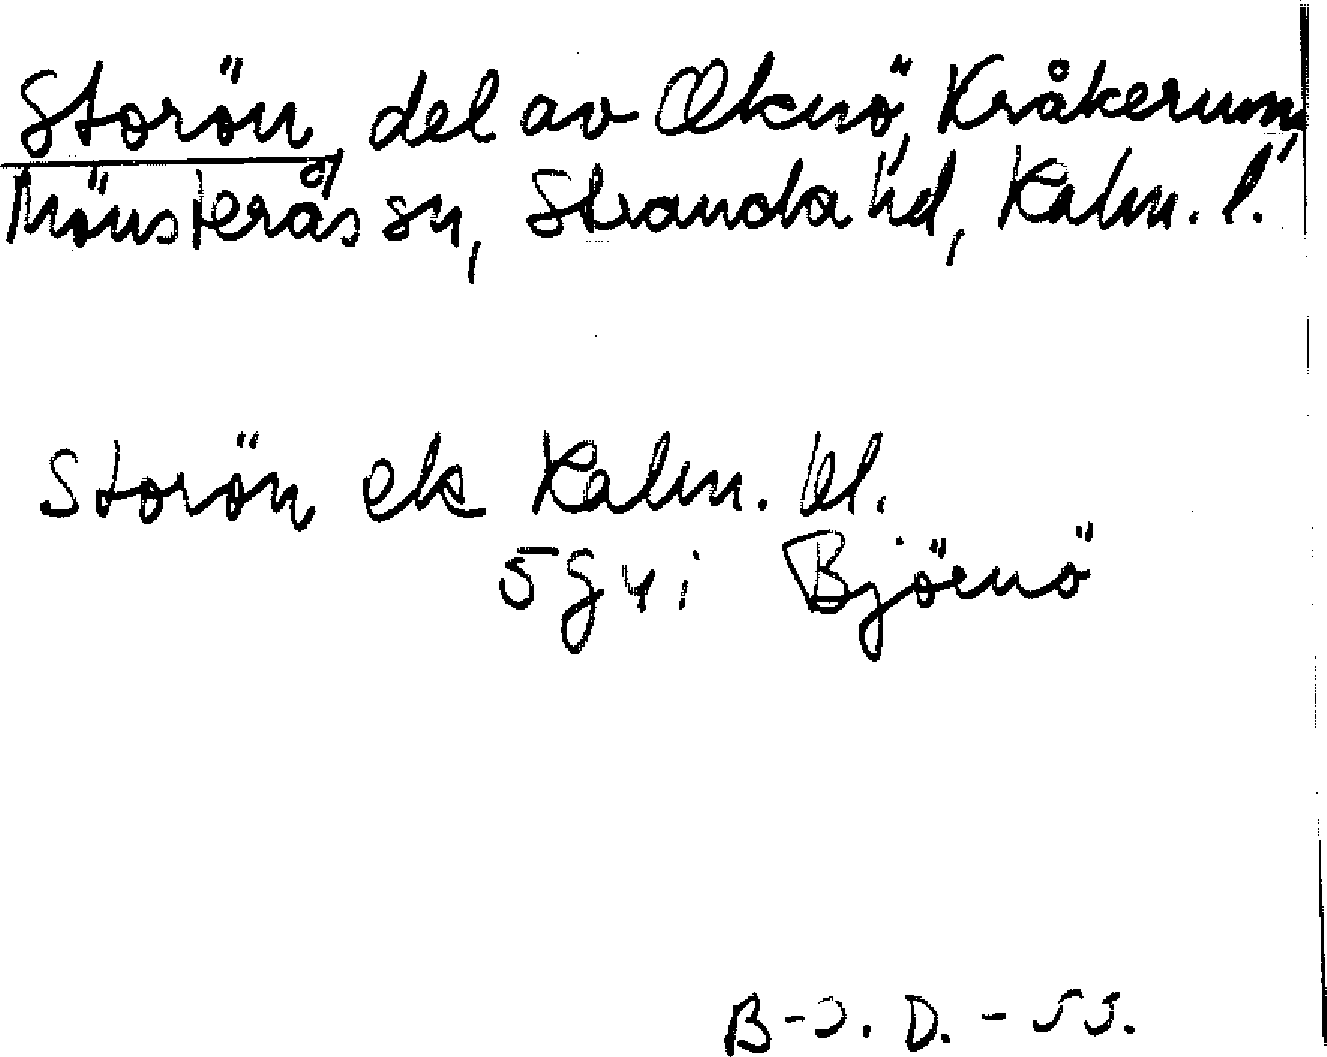 Storön, del av Oknö, Kråkerum,
Mönsterås sn, Stranda hd, Kalm. l.
Storön ek Kalm. bl.
5 G y i Björnö
B-O. D. - 55.